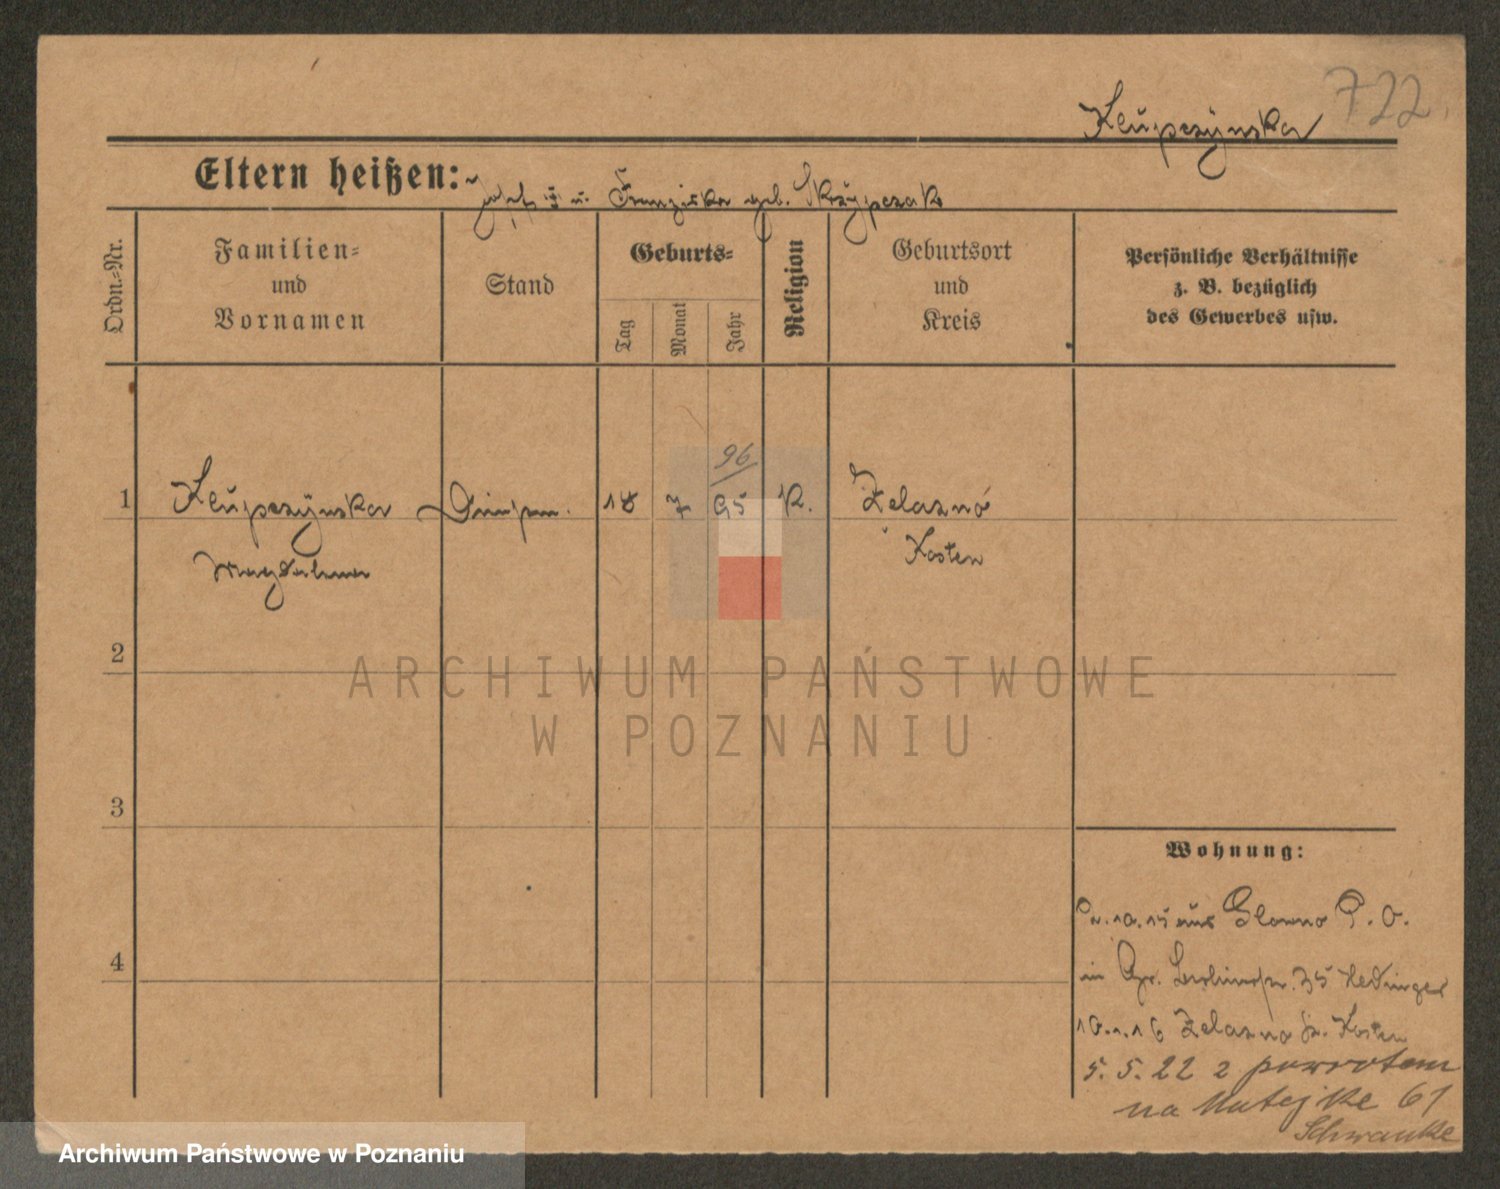 722
Kŭpczÿnska
Eltern heißen:
Josef u. Franziska geb. Skrzypczak
Ordn.-Nr.
Familien-
und
Vornamen
Stand
Geburts-
Tag
Monat
Jahr
Religion
Geburtsort
und
Kreis
Persönliche Verhältnisse
z. B. bezüglich
des Gewerbes usw.
96
1 18 7 95 K. Zelazno
Magdalena Kosten
2
3
4
Wohnung:
10.15 aus Glowno P. O.
in Gr. 35
10.1.16 Zelazno Kr. Kosten
5. 5. 22 z powrotem
na Matejki 61
Schwanke
ARCHIWUM PAŃSTWOWE
W POZNANIU
Archiwum Państwowe w Poznaniu